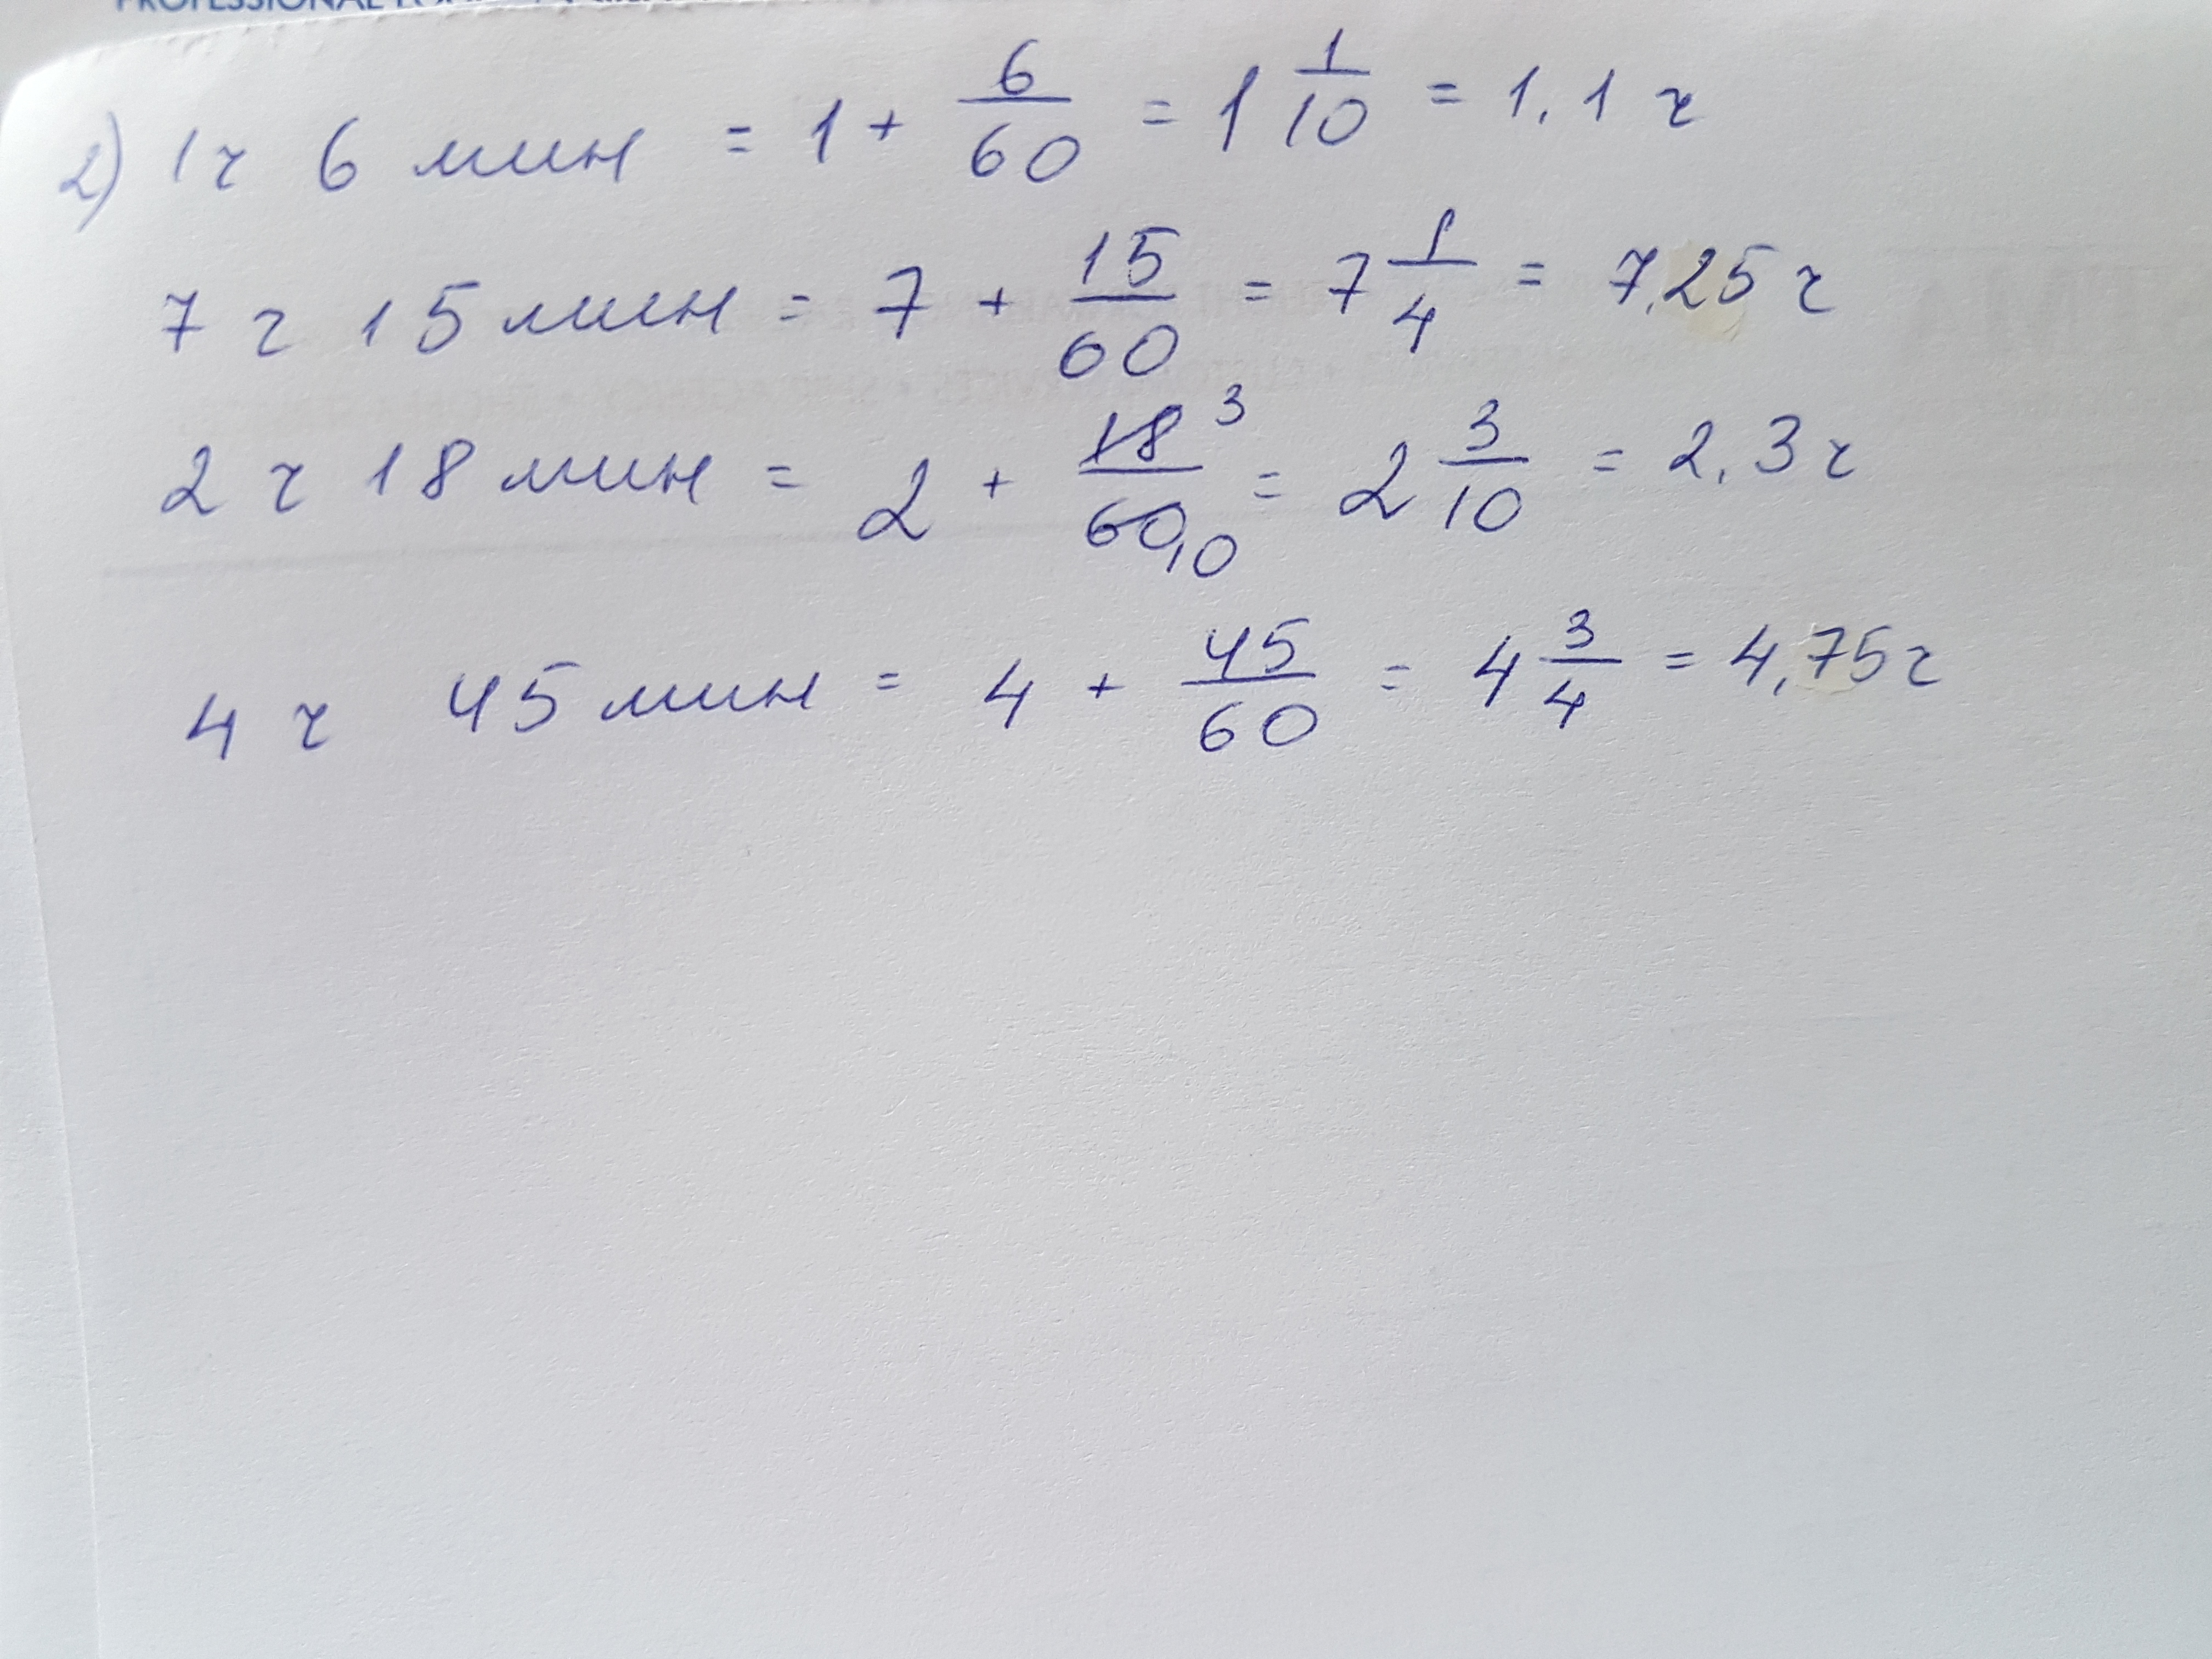 PROFESSIONAL
2) 1ч 6 мин = 1 + 6/60 = 1 1/10 = 1,1 ч
7 ч 15 мин = 7 + 15/60 = 7 1/4 = 7,25 ч
2 ч 18 мин = 2 + 18 3/60 10 = 2 3/10 = 2,3 ч
4 ч 45 мин = 4 + 45/60 = 4 3/4 = 4,75 ч